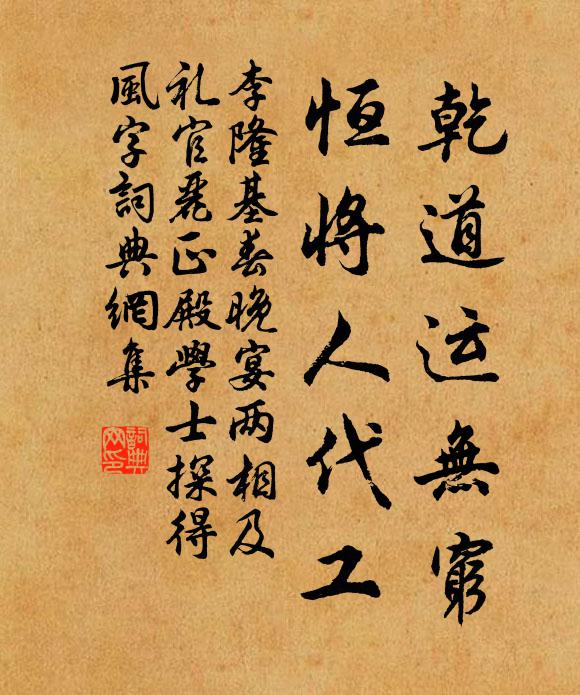 乾道运無窮
恒將人代工
李隆基春晚宴两相及
礼官麗正殿學士探得
風字詞典網集
詞典网印